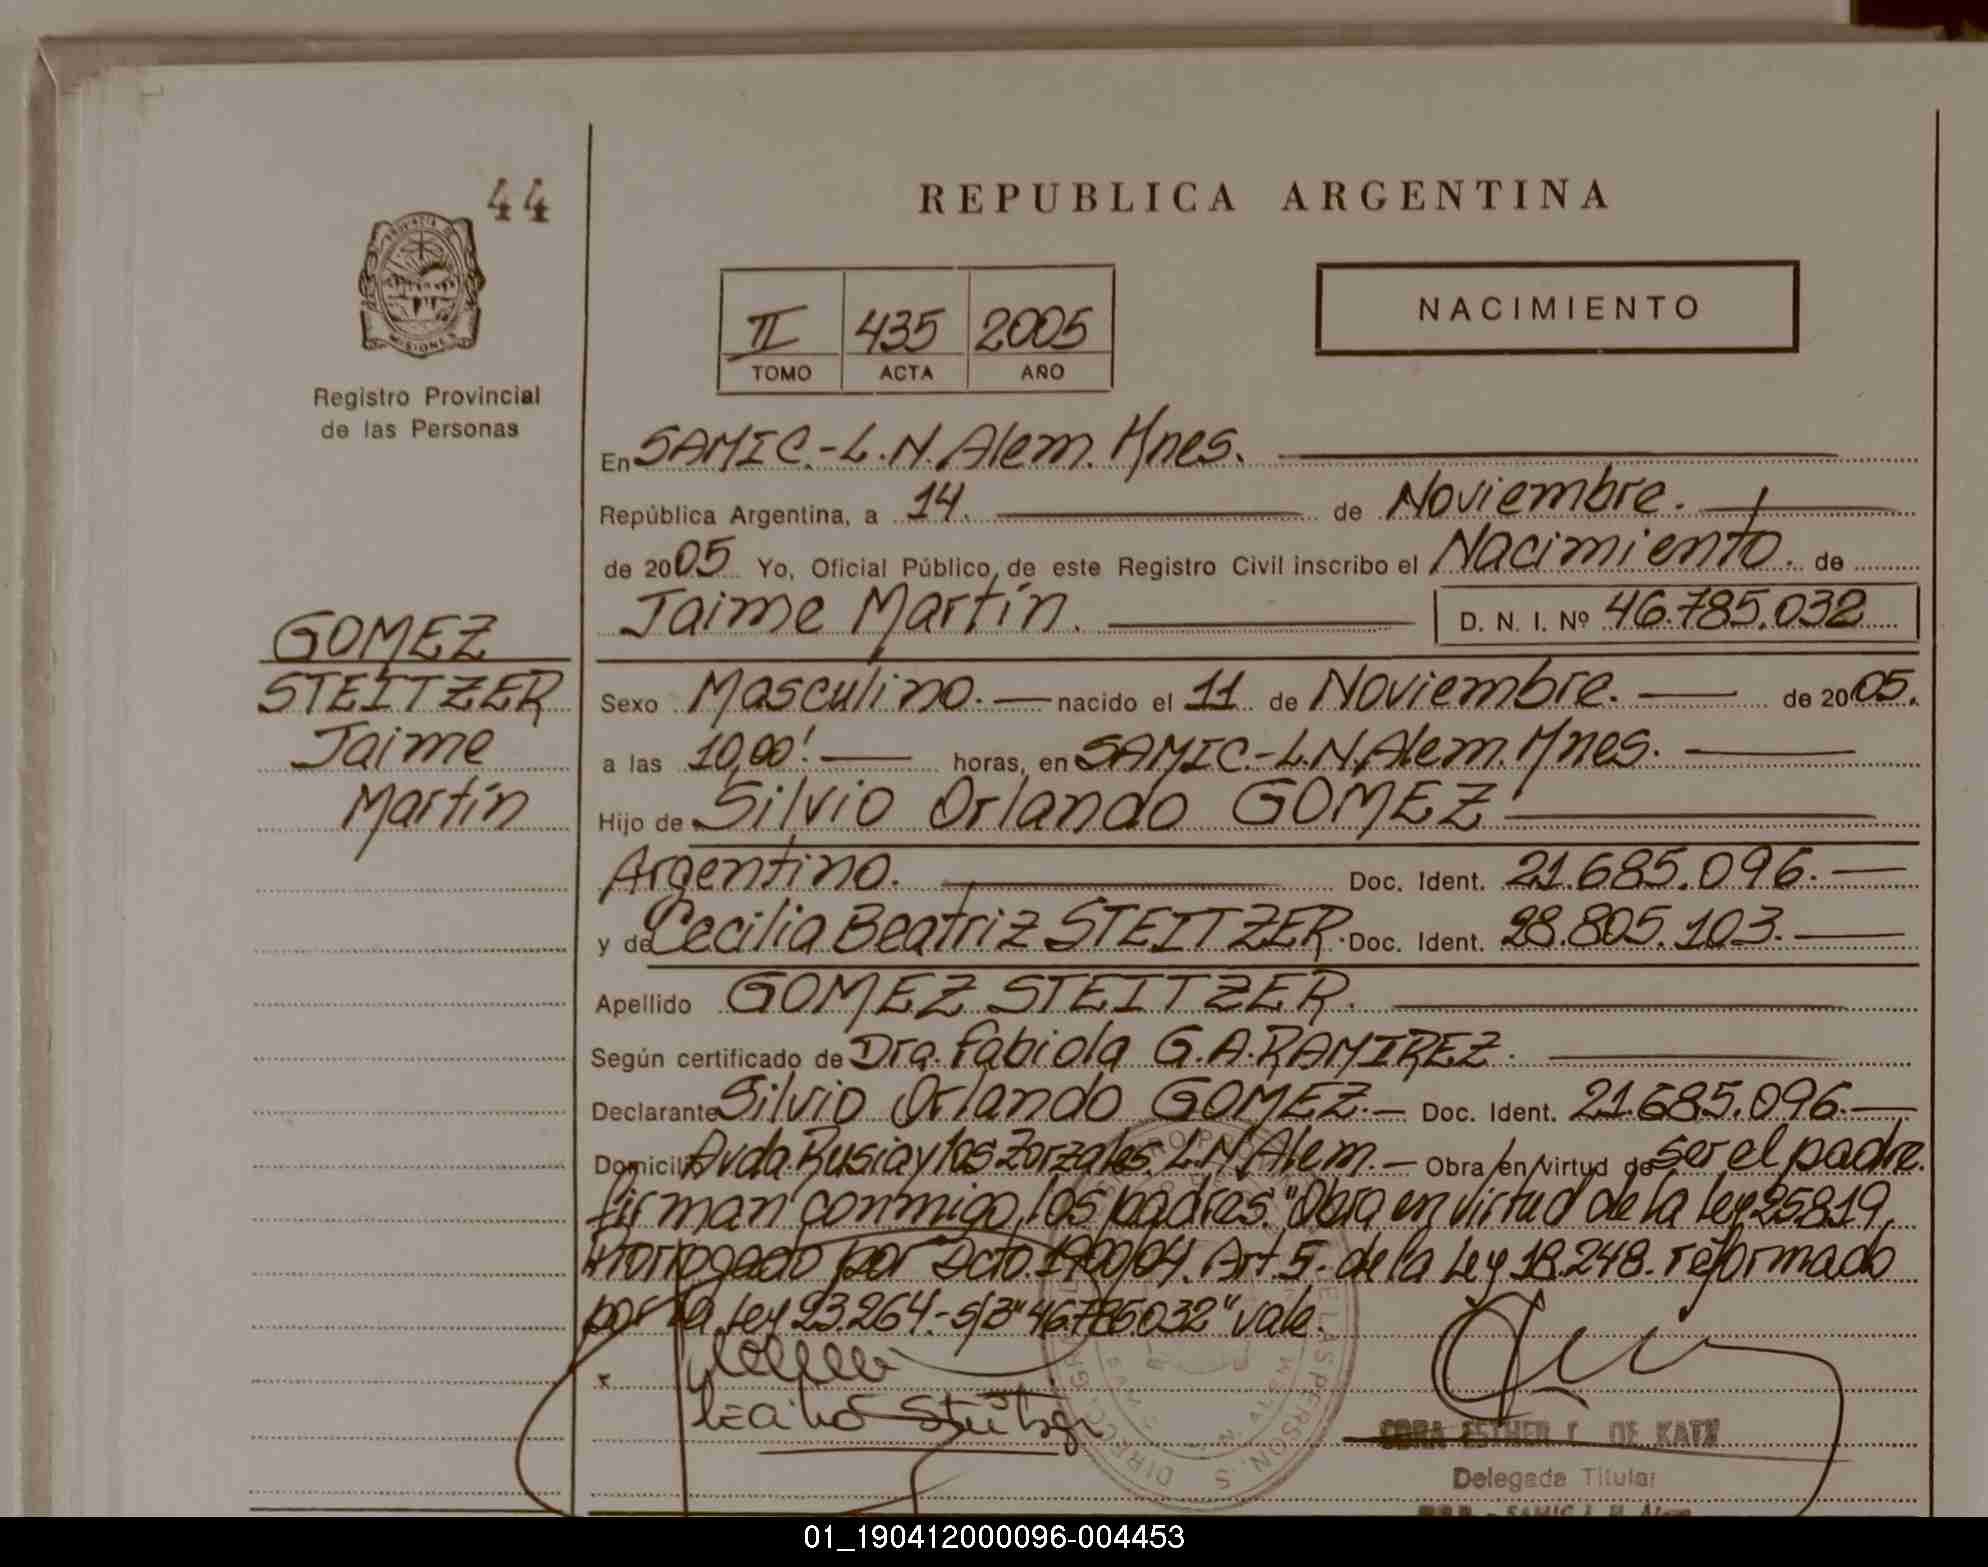 44
REPUBLICA ARGENTINA
NACIMIENTO
II 435 2005
TOMO ACTA AÑO
Registro Provincial
de las Personas
En SAMIC.-L.N.Alem.Mnes.
República Argentina, a 14. de Noviembre.
de 2005 Yo, Oficial Público, de este Registro Civil inscribo el Nacimiento. de
Jaime Martín. D. N. I. Nº 46.785.032
GOMEZ
STEITZER
Jaime
Martín
Sexo Masculino. nacido el 11 de Noviembre. de 2005.
a las 10,00' horas, en SAMIC-L.N.Alem.Mnes.
Hijo de Silvio Orlando GOMEZ
Argentino. Doc. Ident. 21.685.096.
y de Cecilia Beatriz STEITZER. Doc. Ident. 28.805.103.
Apellido GOMEZ STEITZER.
Según certificado de Dra. Fabiola G.A.RAMIREZ.
Declarante Silvio Orlando GOMEZ.- Doc. Ident. 21.685.096.
Domicilio Avda. Rusia y los Zorzales. L.N.Alem.- Obra en virtud de ser el padre.
firman conmigo, los padres. "Obra en virtud de la Ley 25819,
Prorrogado por Dcto. 1900/04. Art. 5. de la Ley 18.248. reformado
por la Ley 23.264.- s/3 "46.785032" vale.
Cecilia Steitzer
ESTHER DE KATZ
Delegada Titular
SAMIC L. N. Alem
DIRECC. LAS PERSONAS
01_190412000096-004453